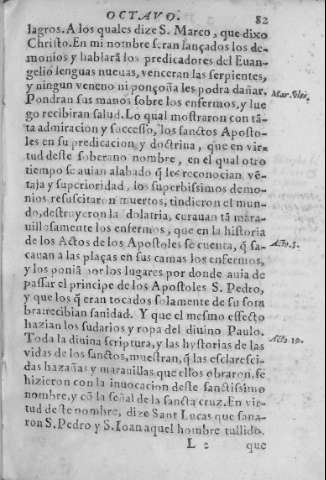 OCTAVO. 82
lagros. A los quales dize S. Marco, que dixo
Christo. En mi nombre seran lançados los de-
monios y hablarã los predicadores del Euan-
gelio lenguas nueuas, venceran las serpientes,
y ningun veneno ni ponçoña les podra dañar.
Pondran sus manos sobre los enfermos, y lue
go recibiran salud. Lo qual mostraron con tã-
ta admiracion y successo, los sanctos Aposto-
les en su predicacion, y doctrina, que en vir-
tud deste soberano nombre, en el qual otro
tiempo se auian alabado q̃ les reconocian vẽ-
taja y superioridad, los superbissimos demo-
nios resuscitaron muertos, rindieron el mun-
do, destruyeron la dolatria, curauan tã mara-
uillosamente los enfermos, que en la historia
de los Actos de los Apostoles se cuenta, q̃ sa-
cauan a las plaças en sus camas los enfermos,
y los poniã por los lugares por donde auia de
passar el principe de los Apostoles S. Pedro,
y que los q̃ eran tocados solamente de su som
bra recibian sanidad. Y que el mesmo effecto
hazian los sudarios y ropa del diuino Paulo.
Toda la diuina scriptura, y las hystorias de las
vidas de los sanctos, muestran, q̃ las esclaresci-
das hazañas y marauillas que ellos obraron, se
hizieron con la inuocacion deste sanctissimo
nombre, y cõ la señal de la sancta cruz. En vir-
tud deste nombre, dize Sant Lucas que sana-
ron S. Pedro y S. Ioan aquel hombre tullido.
L 2 que
Acto. 5.
Acto. 19.